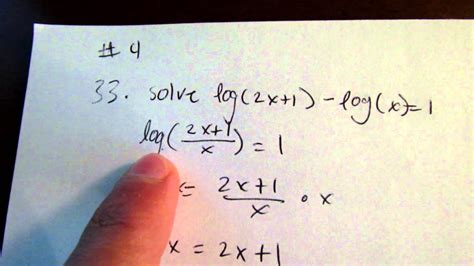 # 4
33. solve log(2x+1) - log(x)=1
log(2x+1/x) = 1
= 2x+1/x · x
x = 2x+1